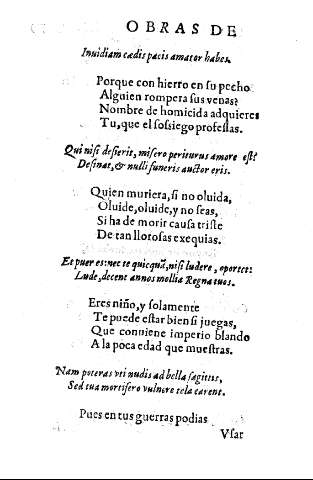 OBRAS DE
Inuidiam cædis pacis amator habes.
Porque con hierro en su pecho
Alguien rompera sus venas?
Nombre de homicida adquieres
Tu, que el sossiego professas.
Qui nisi desierit, misero periturus amore est?
Desinat, & nulli funeris auctor eris.
Quien muriera, si no oluida,
Oluide, oluide, y no seas,
Si ha de morir causa triste
De tan llorosas exequias.
Et puer es: nec te quicquā, nisi ludere, oportet:
Lude, decent annos mollia Regna tuos.
Eres niño, y solamente
Te puede estar bien si juegas,
Que conuiene imperio blando
A la poca edad que muestras.
Nam poteras vti nudis ad bella sagittis,
Sed tua mortifero vulnere tela carent.
Pues en tus guerras podias
Vsar